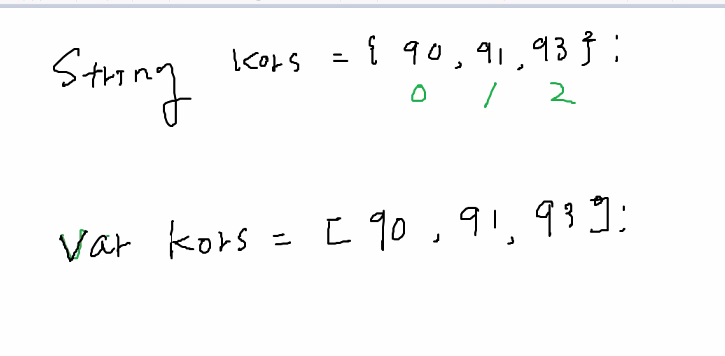 String kors = { 90, 91, 93 };
0 1 2
Var kors = [ 90, 91, 93 ];